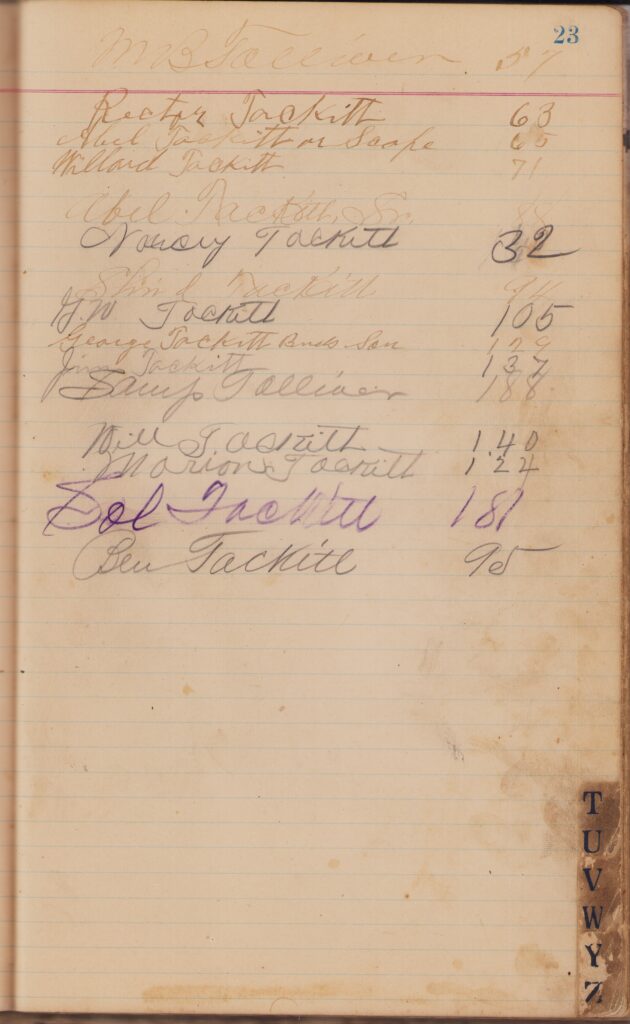 23
M B Tolliver 57
Rector Tackitt 63
Abel Tackitt or Scafe 65
Willard Tackitt 71
Abel Tackitt, Sr. 88
Nancy Tackitt 32
Tackitt 94
G.W Tackitt 105
George Tackitt Bucks Son 129
Jim Tackitt 137
Samp Tolliver 188
Will Tackitt 140
Marion Tackitt 124
Sol Tackitt 181
Ben Tackitt 95
T
U
V
W
Y
Z